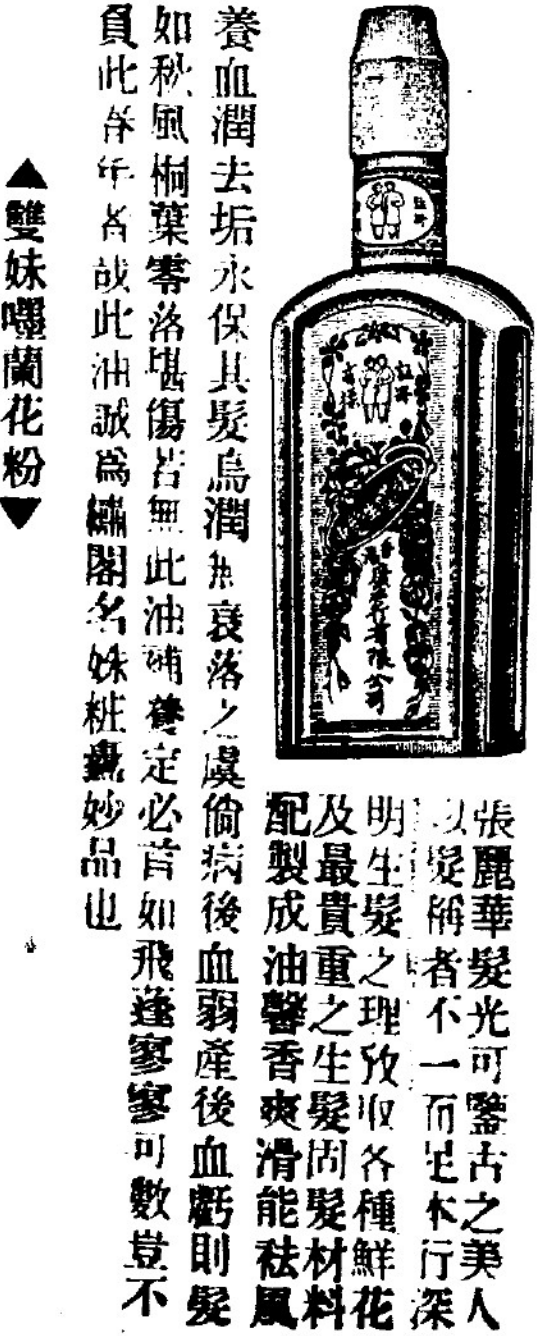 張麗華髮光可鑒古之美人
以髮稱者不一而足本行深
明生髮之理攷取各種鮮花
及最貴重之生髮固髮材料
配製成油馨香爽滑能祛風
養血潤去垢永保其髮烏潤無衰落之虞倘病後血弱產後血虧則髮
如秋風桐葉零落堪傷若無此油補養定必首如飛蓬寥寥可數豈不
負此青年者哉此油誠為繡閣名姝粧臺妙品也
▲雙妹嚜蘭花粉▼
廣生行有限公司